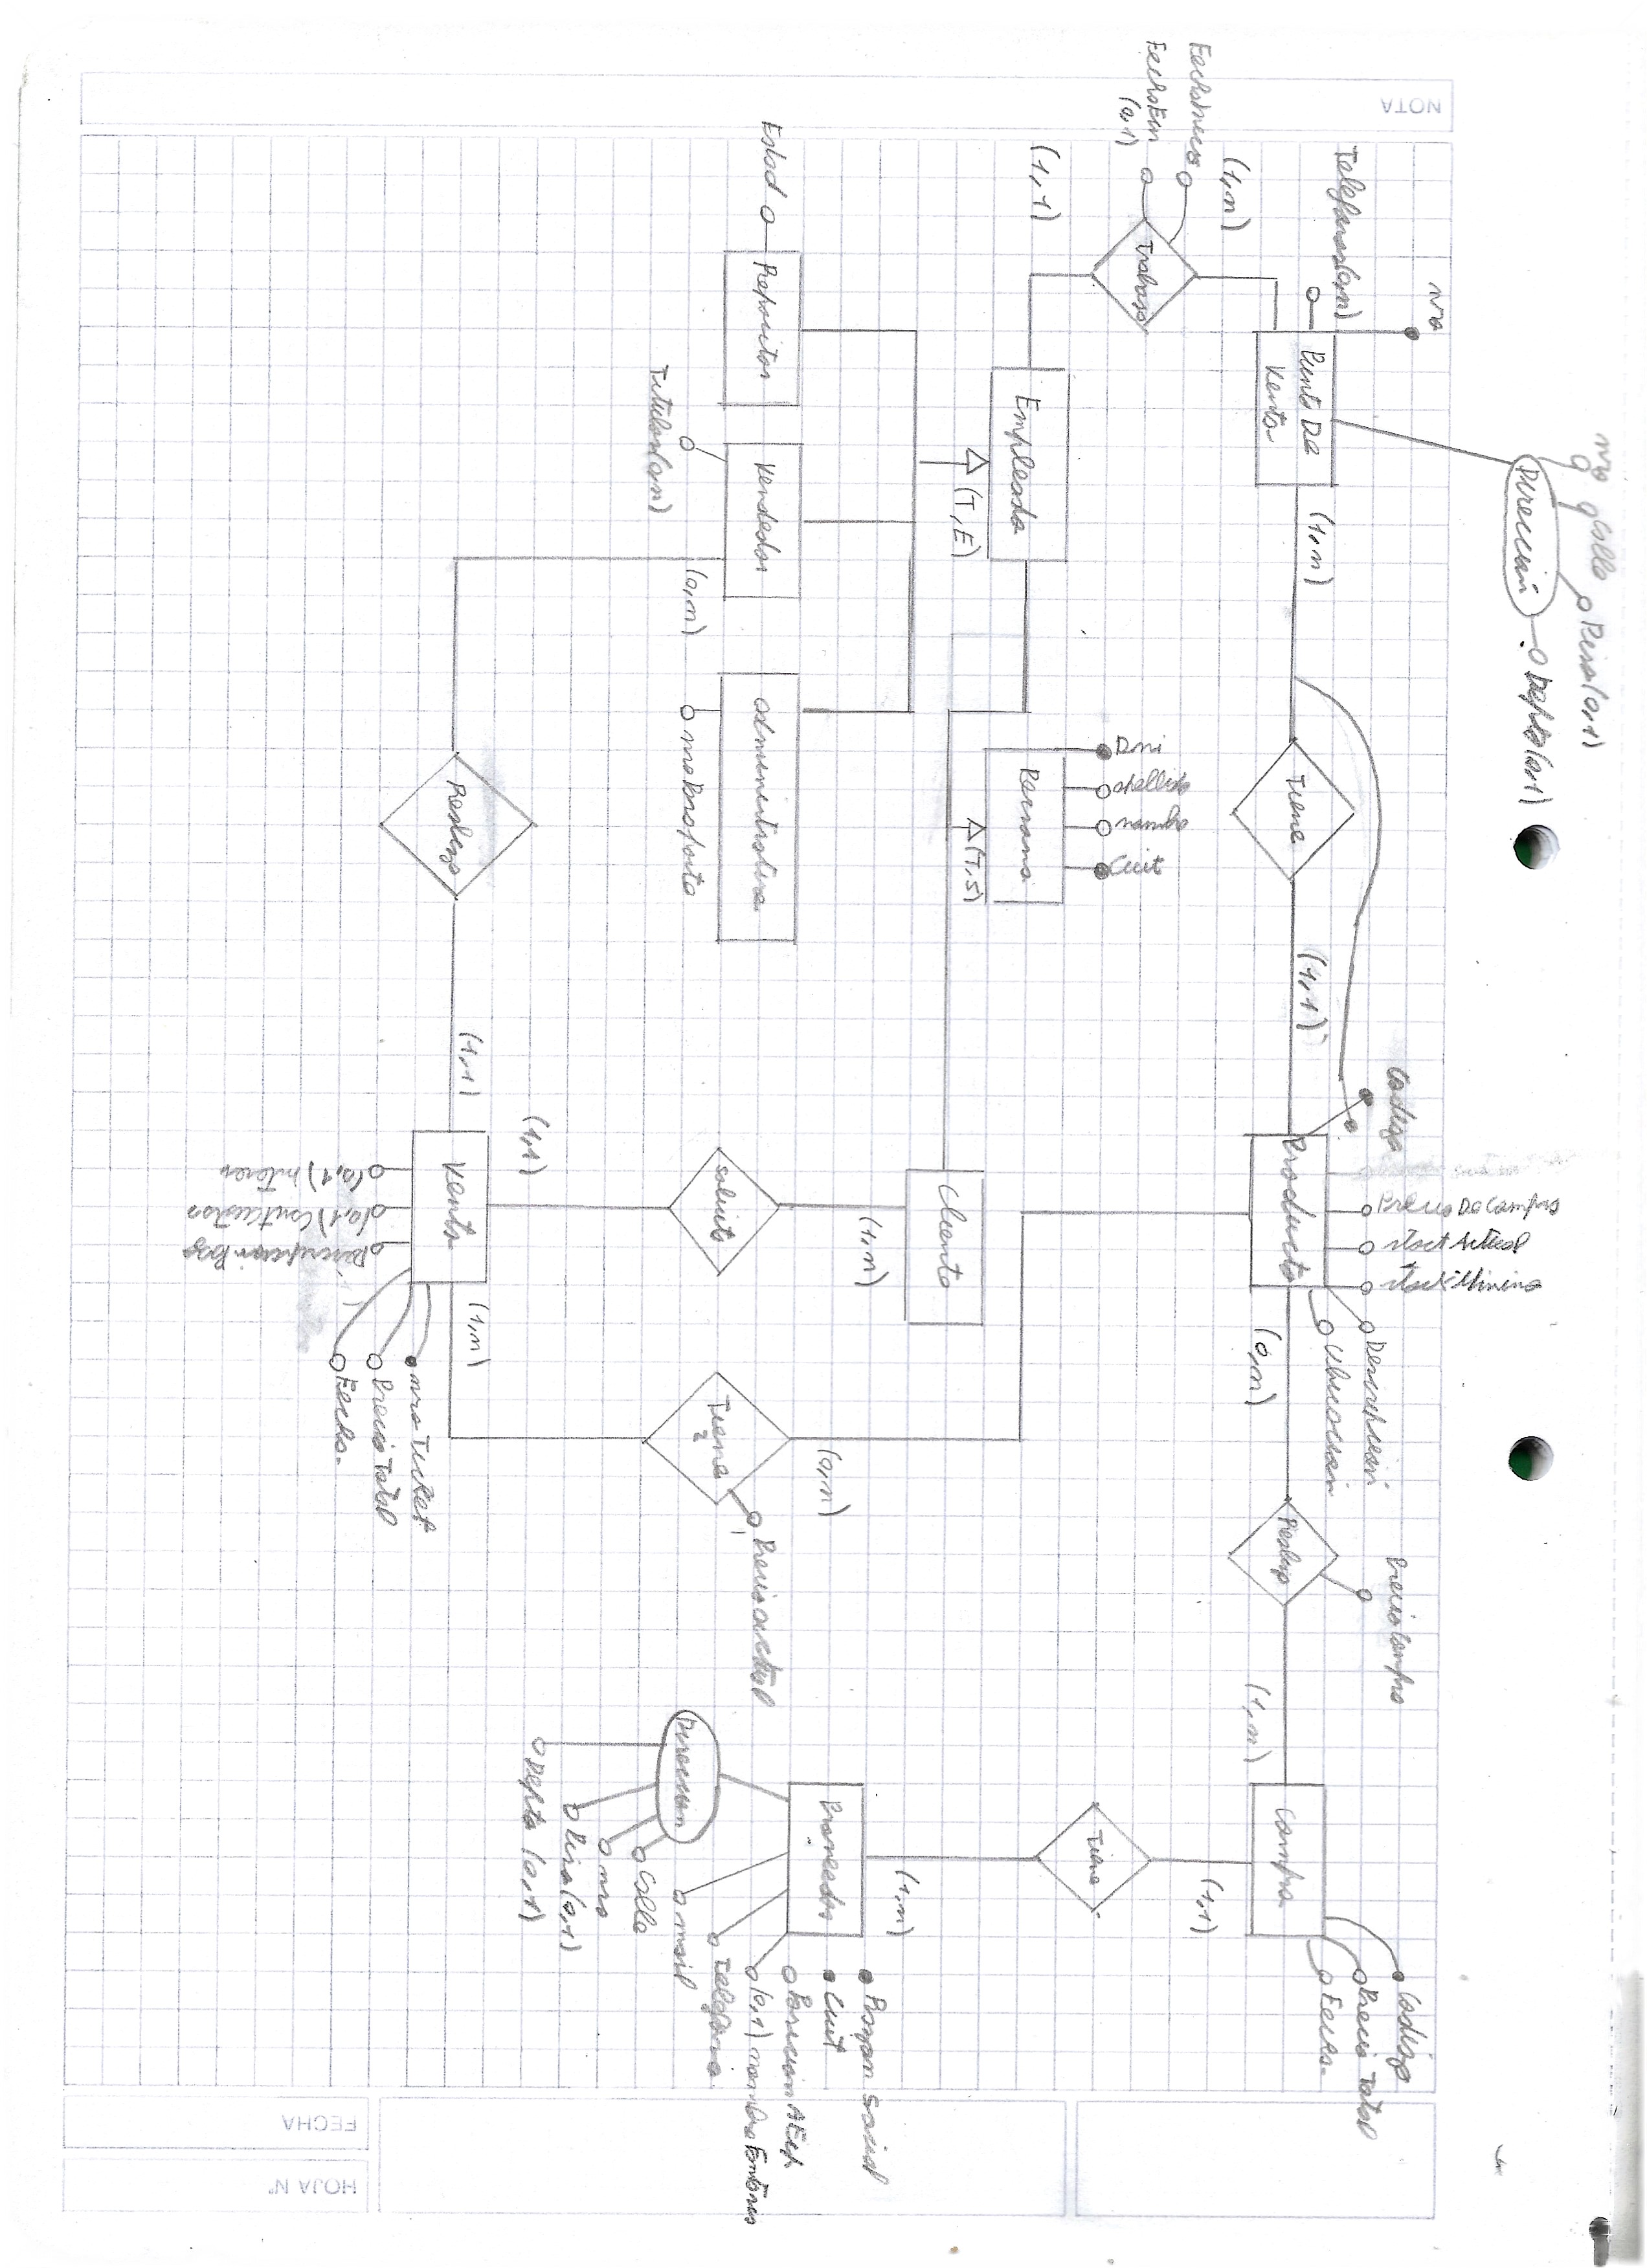 nro
Calle
Piso(0,1)
Dirección
Depto(0,1)
NOTA
nro
Telefonos(0,n)
Punto De
Venta
(1,n)
Tiene
(1,1)
Codigo
Precio De Compra
stock Actual
stock Minimo
Descripcion
Ubicacion
Producto
(0,n)
Precio Compra
Realiza
(1,n)
Codigo
Precio Total
Fecha
Compra
(1,1)
Tiene
(1,n)
FechaInicio
FechaFin
(0,1)
Trabaja
(1,1)
Empleado
(T,E)
Dni
apellido
nombre
Cuit
Persona
(T,S)
Cliente
(1,n)
(0,n)
(1,n)
Proveedor
Razon Social
Cuit
Posicion AFip
(0,1) nombre
Telefono
mail
Direccion
Calle
nro
Piso(0,1)
Depto (0,1)
Edad
Repositor
Vendedor
administrativo
Titulos(0,n)
(0,n)
nroPasaporte
solicita
Tiene
2
Precio actual
(1,1)
Realiza
(1,1)
Venta
(1,n)
nro Ticket
Precio Total
Fecha
(0,1) Interes
(0,1) CantCuotas
Descripcion Pago
FECHA
HOJA Nº